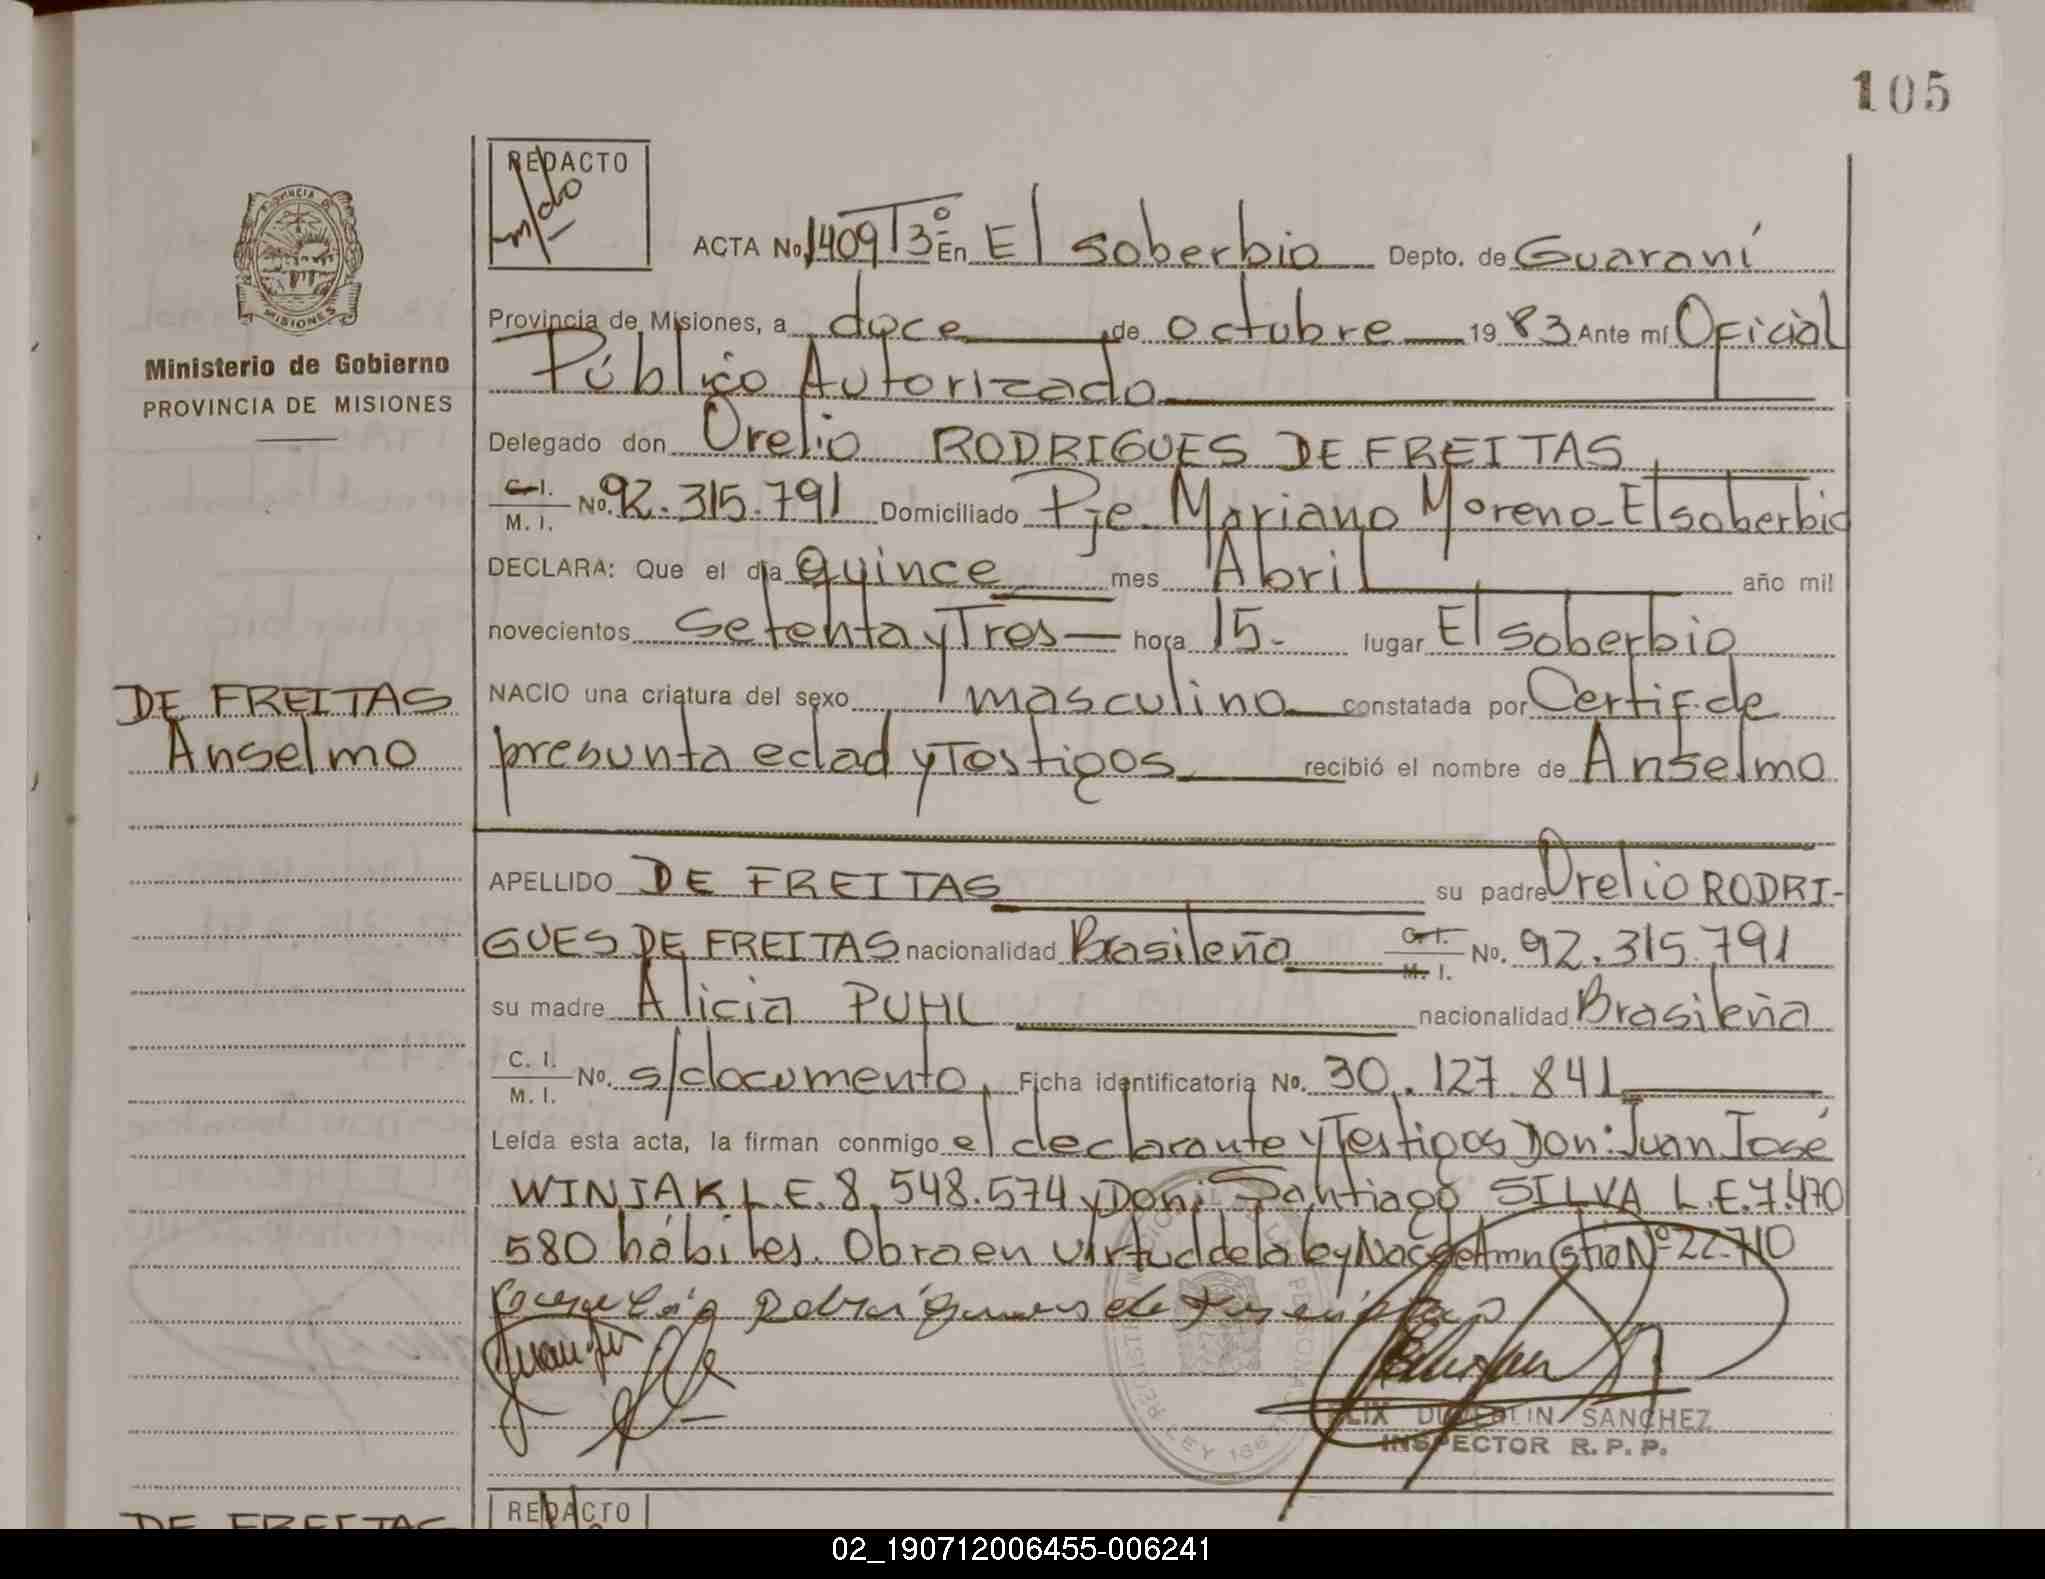 105
REDACTO
m/do
ACTA No. 1409 T 3º En El soberbio Depto. de Guaraní
PROVINCIA DE MISIONES
Provincia de Misiones, a doce de octubre 1983 Ante mí Oficial
Ministerio de Gobierno
PROVINCIA DE MISIONES
Público Autorizado
Delegado don Orelio RODRIGUES DE FREITAS
C. I. M. I. No. 92.315.791 Domiciliado Pje Mariano Moreno-El soberbio
DECLARA: Que el día quince mes Abril año mil
novecientos setenta y Tres hora 15.- lugar El soberbio
DE FREITAS
Anselmo
NACIO una criatura del sexo masculino constatada por Certif. de
presunta edad y Testigos recibió el nombre de Anselmo
APELLIDO DE FREITAS su padre Orelio RODRI-
GUES DE FREITAS nacionalidad Brasileña C. I. M. I. No. 92.315.791
su madre Alicia PUHL nacionalidad Brasileña
C. I. M. I. No. s/documento, Ficha identificatoria No. 30.127.841
Leída esta acta, la firman conmigo el declarante y Testigos Don: Juan José
WINIAK L.E. 8.548.574 y Don: Santiago SILVA L.E. 7.470
580 hábiles. Obra en virtud de la ley Nac. de Amnistia Nº 22.710
DUVERLIN SANCHEZ
INSPECTOR R. P. P.
DE FREITAS
REDACTO
02_190712006455-006241